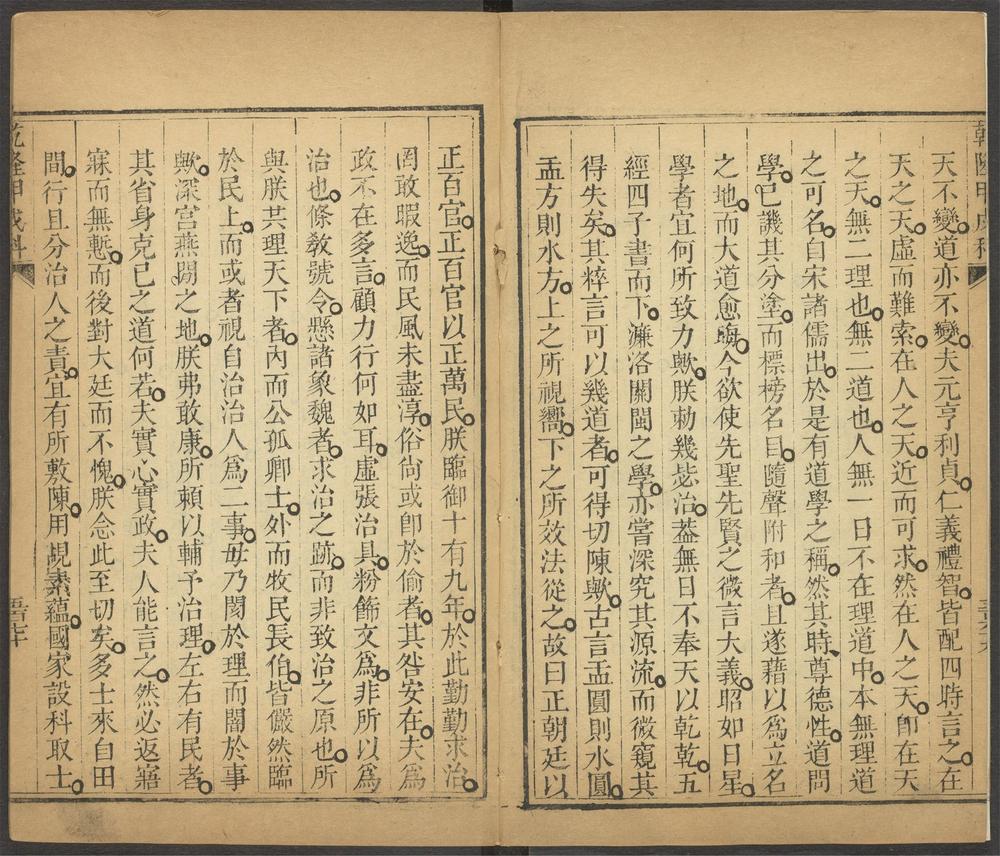 乾隆甲戌科
天不變道亦不變夫元亨利貞仁義禮智皆配四時言之在
天之天虛而難索在人之天近而可求然在人之天卽在天
之天無二理也無二道也人無一日不在理道中本無理道
之可名自宋諸儒出於是有道學之稱然其時尊德性道問
學已譏其分塗而標榜名目隨聲附和者且遂藉以爲立名
之地而大道愈晦今欲使先聖先賢之微言大義昭如日星
學者宜何所致力歟朕勅幾毖治葢無日不奉天以乾乾五
經四子書而下濂洛關閩之學亦嘗深究其源流而微窺其
得失矣其粹言可以幾道者可得切陳歟古言盂圓則水圓
盂方則水方上之所視嚮下之所效法從之故曰正朝廷以
正百官正百官以正萬民朕臨御十有九年於此勤勤求治
罔敢暇逸而民風未盡淳俗尙或卽於偷者其咎安在夫爲
政不在多言顧力行何如耳虛張治具粉飾文爲非所以爲
治也條敎號令懸諸象魏者求治之跡而非致治之原也所
與朕共理天下者內而公孤卿士外而牧民長伯皆儼然臨
於民上而或者視自治治人爲二事毋乃閡於理而闇於事
歟深宮燕閒之地朕弗敢康所賴以輔予治理左右有民者
其省身克己之道何若夫實心實政夫人能言之然必返寤
寐而無慙而後對大廷而不愧朕念此至切矣多士來自田
間行且分治人之責宜有所敷陳用覘素蘊國家設科取士
乾隆甲戌科